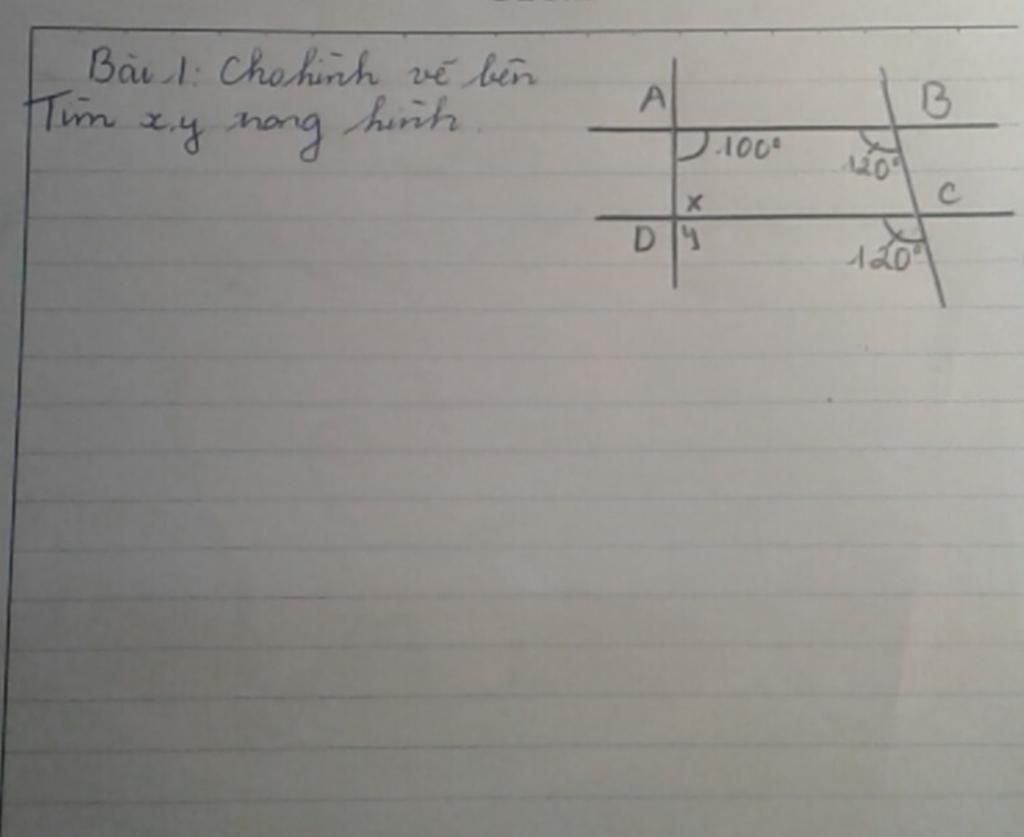 Bài 1: Cho hình vẽ bên
Tìm x, y trong hình.
A
B
100°
120°
x
C
D
y
120°